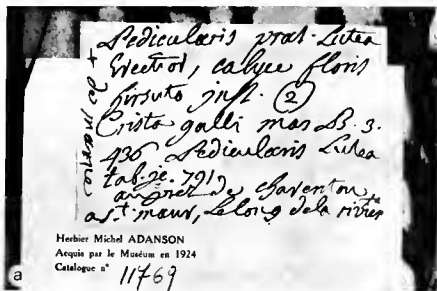 Pedicularis prat. Lutea
Erectior, calyce floris
hirsuto inst. (2)
Crista galli mas B. 3.
436 Pedicularis Lutea
tab. ic. 791
au pret de charenton
a st maur, Le long de la riviere
+ de
Herbier Michel ADANSON
Acquis par le Muséum en 1924
Catalogue n° 11769
a